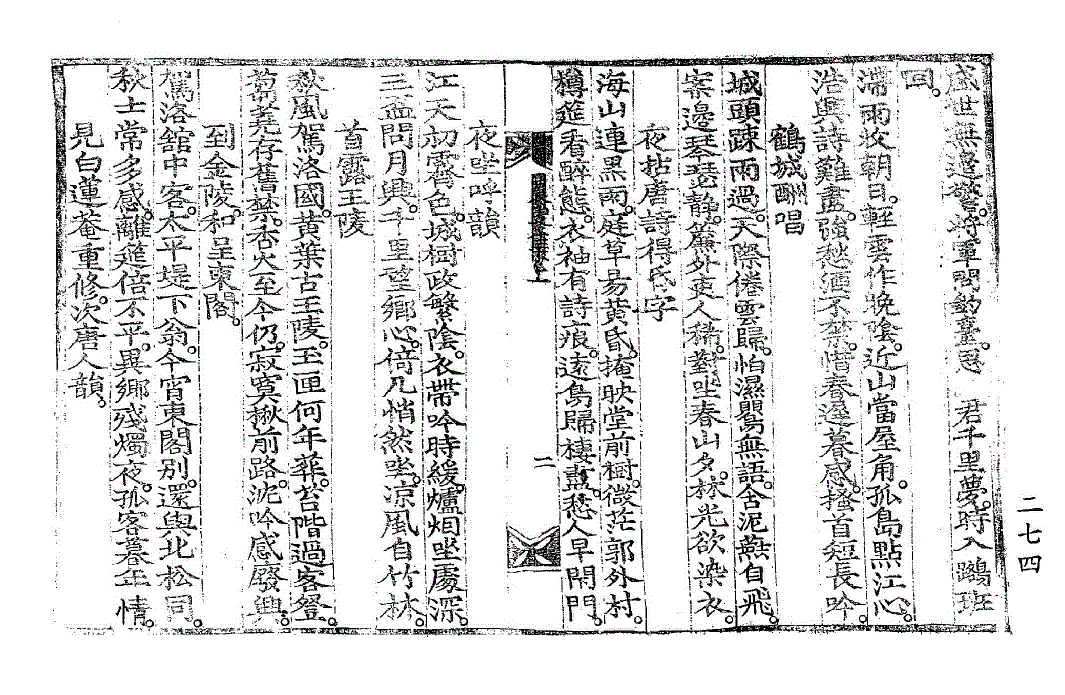 盛世無邊警。將軍閑釣臺。思 君千里夢。時入鵷班
回。
滯雨收朝日。輕雲作晚陰。近山當屋角。孤島點江心。
浩興詩難盡。強愁酒不禁。惜春遲暮感。搔首短長吟
鶴城酬唱
城頭疎雨過。天際倦雲歸。怕濕鸎無語。含泥燕自飛。
案邊琴瑟靜。簾外吏人稀。對坐春山夕。林光欲染衣。
夜拈唐詩得昏字
海山連黑雨。庭草易黃昏。掩映堂前樹。微茫郭外村。
樽筵看醉態。衣袖有詩痕。遠鳥歸棲盡。愁人早閉門。
二
夜坐呼韻
江天初霽色。城樹政繁陰。衣帶吟時緩。爐烟坐處深。
三盃問月興。千里望鄕心。倚几悄然坐。凉風自竹林
首露王陵
秋風駕洛國。黃葉古王陵。玉匣何年葬。苔階過客登。
蒭蕘存舊禁。香火至今仍。寂寞楸前路。沈吟感廢興。
到金陵。和呈東閣。
駕洛舘中客。太平堤下翁。今宵東閣別。還與北松同。
秋士常多感。離筵倍不平。異鄕殘燭夜。孤客暮年情。
見白蓮菴重修。次唐人韻。
二七四